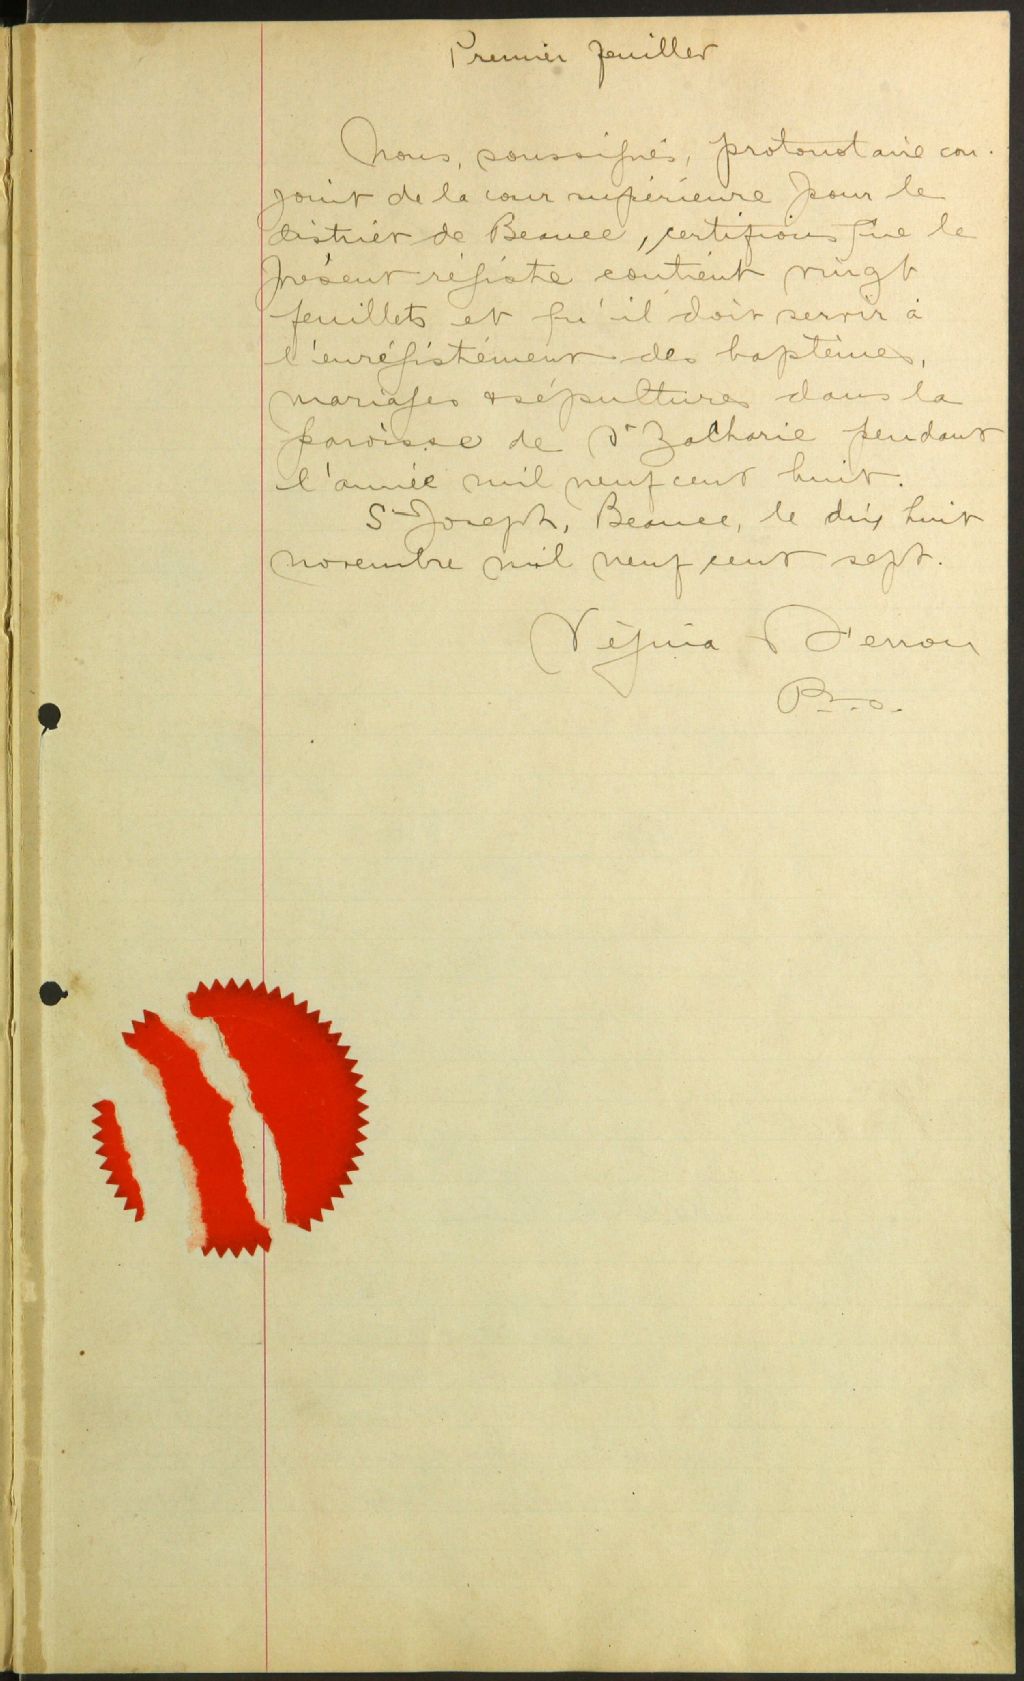 Premier feuillet
Nous, soussignés, protonotaire con-
joint de la cour supérieure pour le
district de Beauce, certifions que le
présent régistre contient vingt
feuillets et qu'il doit servir à
l'enrégistrément des baptêmes,
mariages & sépultures dans la
paroisse de St Zacharie pendant
l'année mil neuf cent huit.
St Joseph, Beauce, le dix huit
novembre mil neuf cent sept.
Vézina & Ferron
P.c.s.